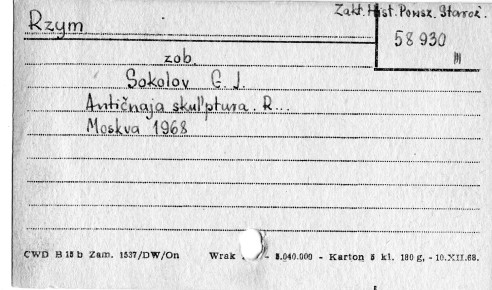 Rzym
Zakł. Hist. Powsz. Staroż.
58 930
III
zob.
Sokolov G. I.
Antičnaja skul'ptura. R...
Moskva 1968
CWD B 15 b Zam. 1537/DW/On Wrak - 5.040.000 - Karton 5 kl. 180 g, - 10.XII.68.